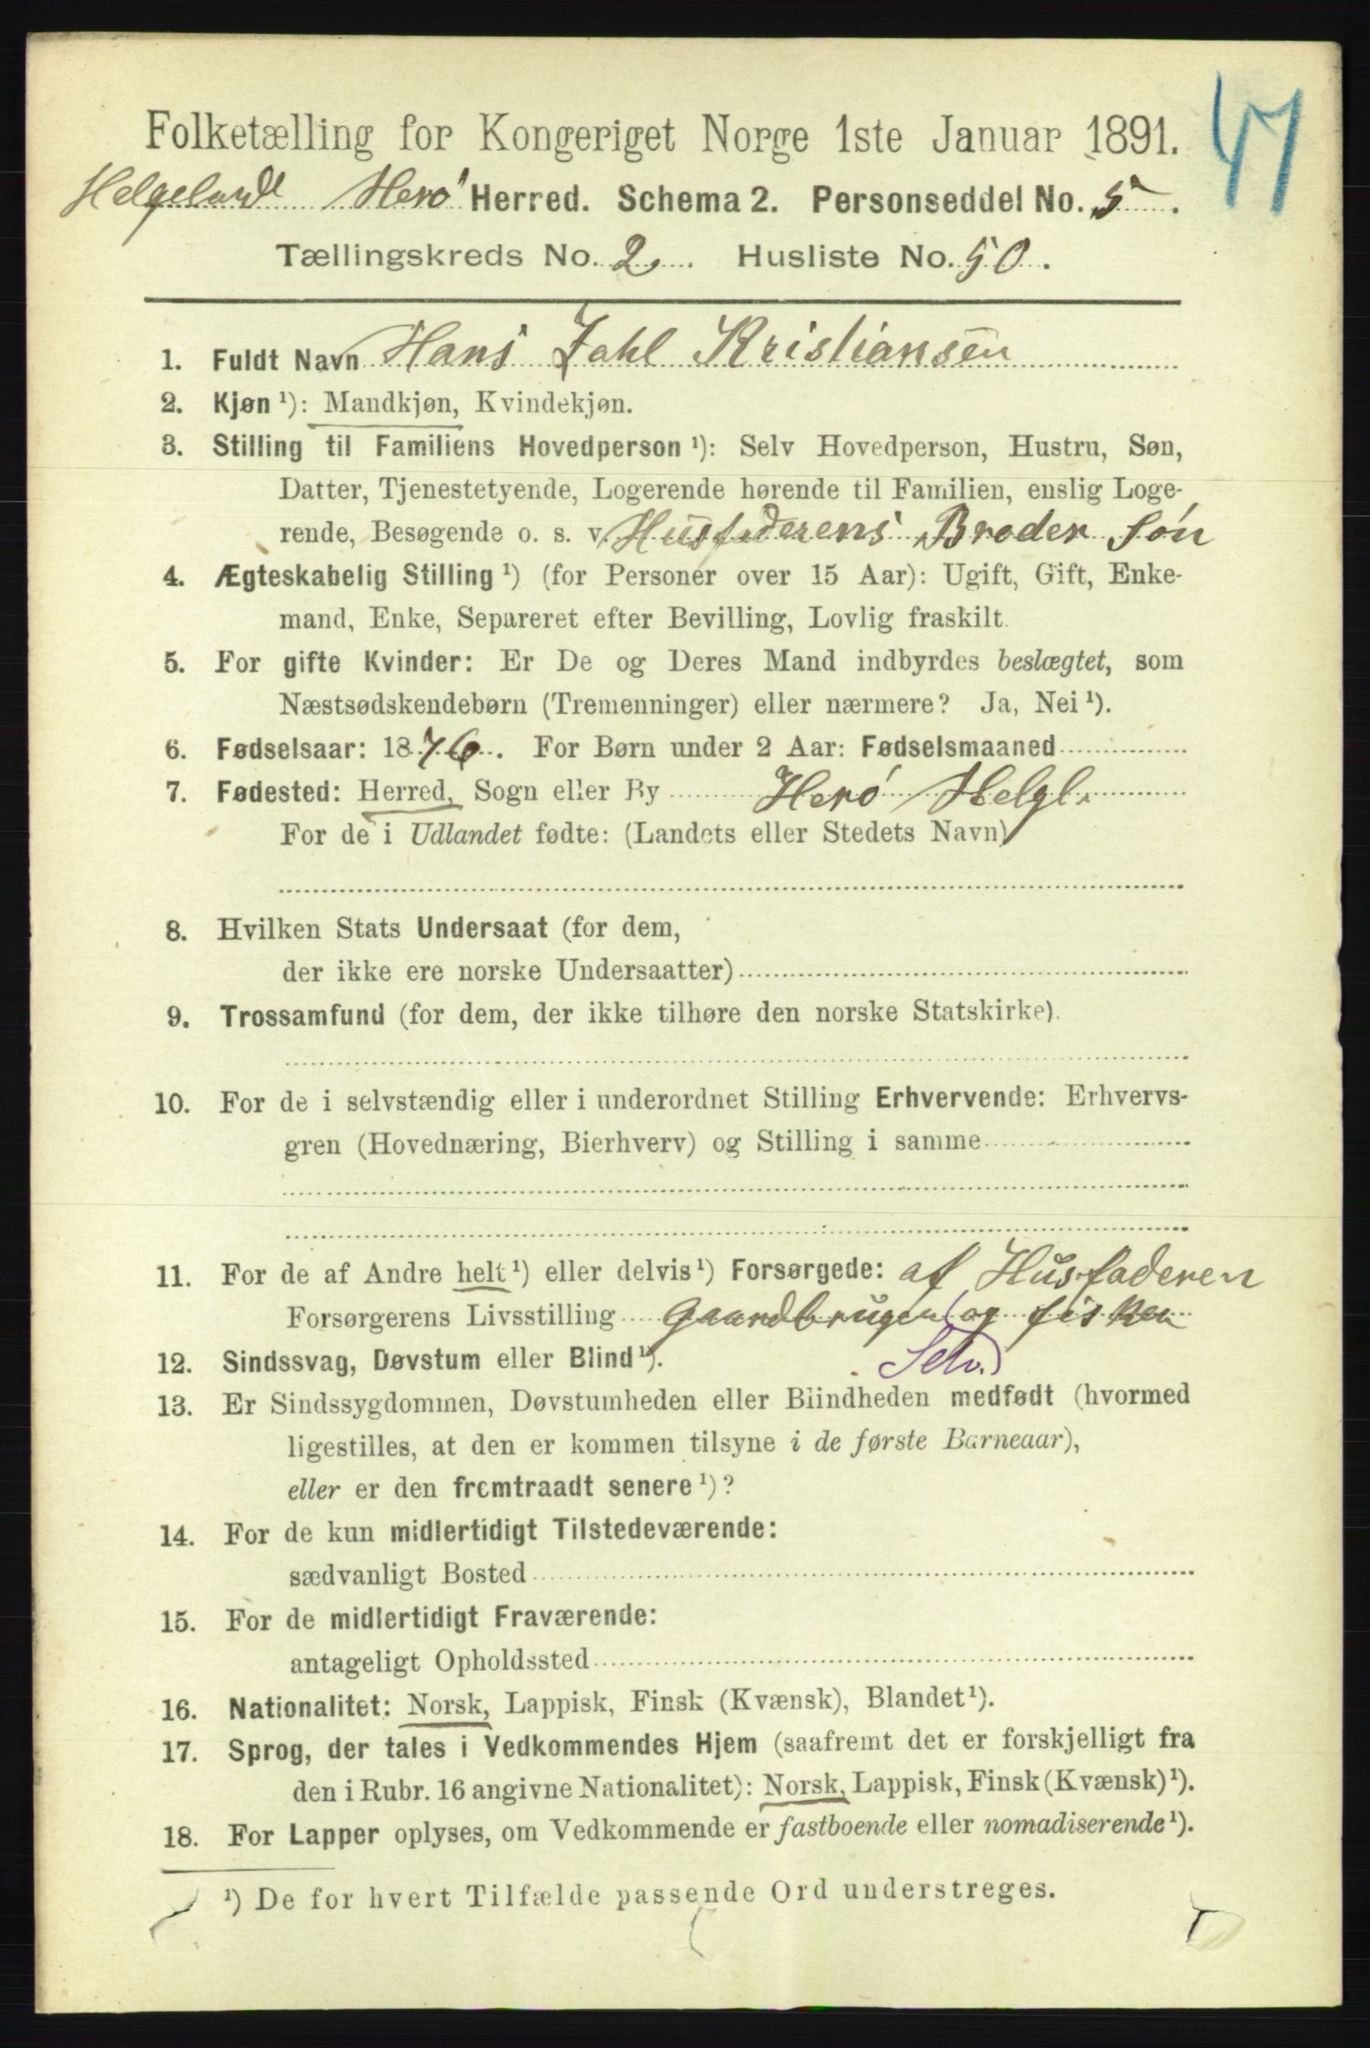 47
Folketælling for Kongeriget Norge 1ste Januar 1891.
Helgeland Herø Herred. Schema 2. Personseddel No. 5.
Tællingskreds No. 2. Husliste No. 50.
1. Fuldt Navn Hans Zahl Kristiansen
2. Kjøn ¹): Mandkjøn, Kvindekjøn.
3. Stilling til Familiens Hovedperson ¹): Selv Hovedperson, Hustru, Søn,
Datter, Tjenestetyende, Logerende hørende til Familien, enslig Loge-
rende, Besøgende o. s. v. Husfaderens Broder Søn
4. Ægteskabelig Stilling ¹) (for Personer over 15 Aar): Ugift, Gift, Enke-
mand, Enke, Separeret efter Bevilling, Lovlig fraskilt.
5. For gifte Kvinder: Er De og Deres Mand indbyrdes beslægtet, som
Næstsødskendebørn (Tremenninger) eller nærmere? Ja, Nei ¹).
6. Fødselsaar: 1876. For Børn under 2 Aar: Fødselsmaaned
7. Fødested: Herred, Sogn eller By Herø Helgl.
For de i Udlandet fødte: (Landets eller Stedets Navn)
8. Hvilken Stats Undersaat (for dem,
der ikke ere norske Undersaatter)
9. Trossamfund (for dem, der ikke tilhøre den norske Statskirke).
10. For de i selvstændig eller i underordnet Stilling Erhvervende: Erhvervs-
gren (Hovednæring, Bierhverv) og Stilling i samme
11. For de af Andre helt ¹) eller delvis ¹) Forsørgede: af Husfaderen
Forsørgerens Livsstilling Gaardbruger og fisker
Selv.
12. Sindssvag, Døvstum eller Blind ¹).
13. Er Sindssygdommen, Døvstumheden eller Blindheden medfødt (hvormed
ligestilles, at den er kommen tilsyne i de første Barneaar),
eller er den fremtraadt senere ¹)?
14. For de kun midlertidigt Tilstedeværende:
sædvanligt Bosted
15. For de midlertidigt Fraværende:
antageligt Opholdssted
16. Nationalitet: Norsk, Lappisk, Finsk (Kvænsk), Blandet ¹).
17. Sprog, der tales i Vedkommendes Hjem (saafremt det er forskjelligt fra
den i Rubr. 16 angivne Nationalitet): Norsk, Lappisk, Finsk (Kvænsk) ¹).
18. For Lapper oplyses, om Vedkommende er fastboende eller nomadiserende ¹).
¹) De for hvert Tilfælde passende Ord understreges.